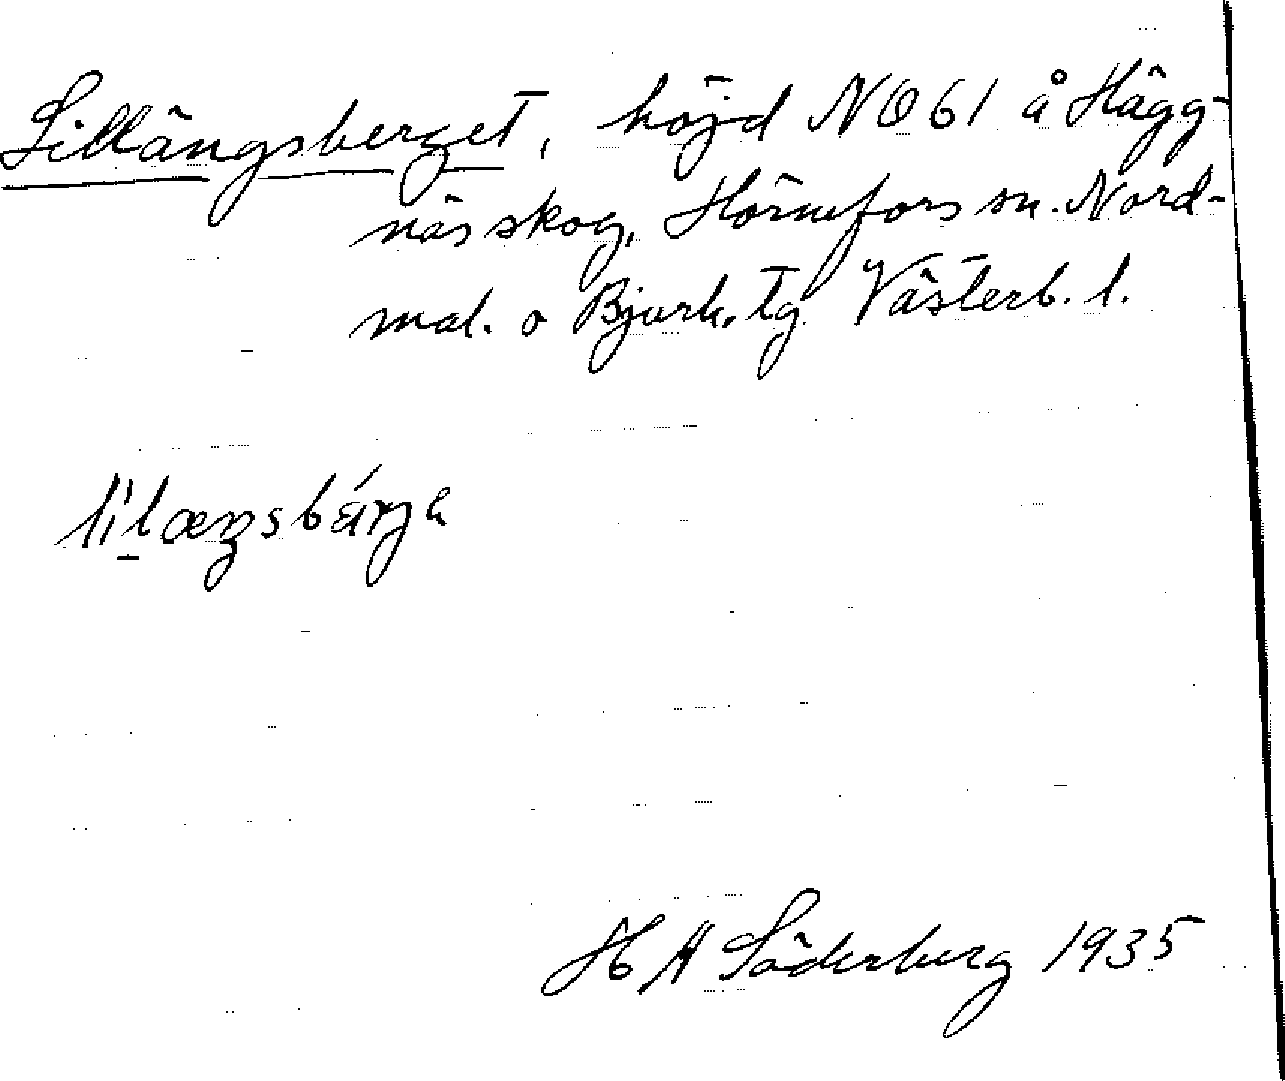 Lillängsberget, höjd NO 61 å Hägg-
näs skog, Hörnefors sn. Nord-
mal. o Bjurh. tg Västerb. l.
lílæŋsbárja
H A Söderberg 1935